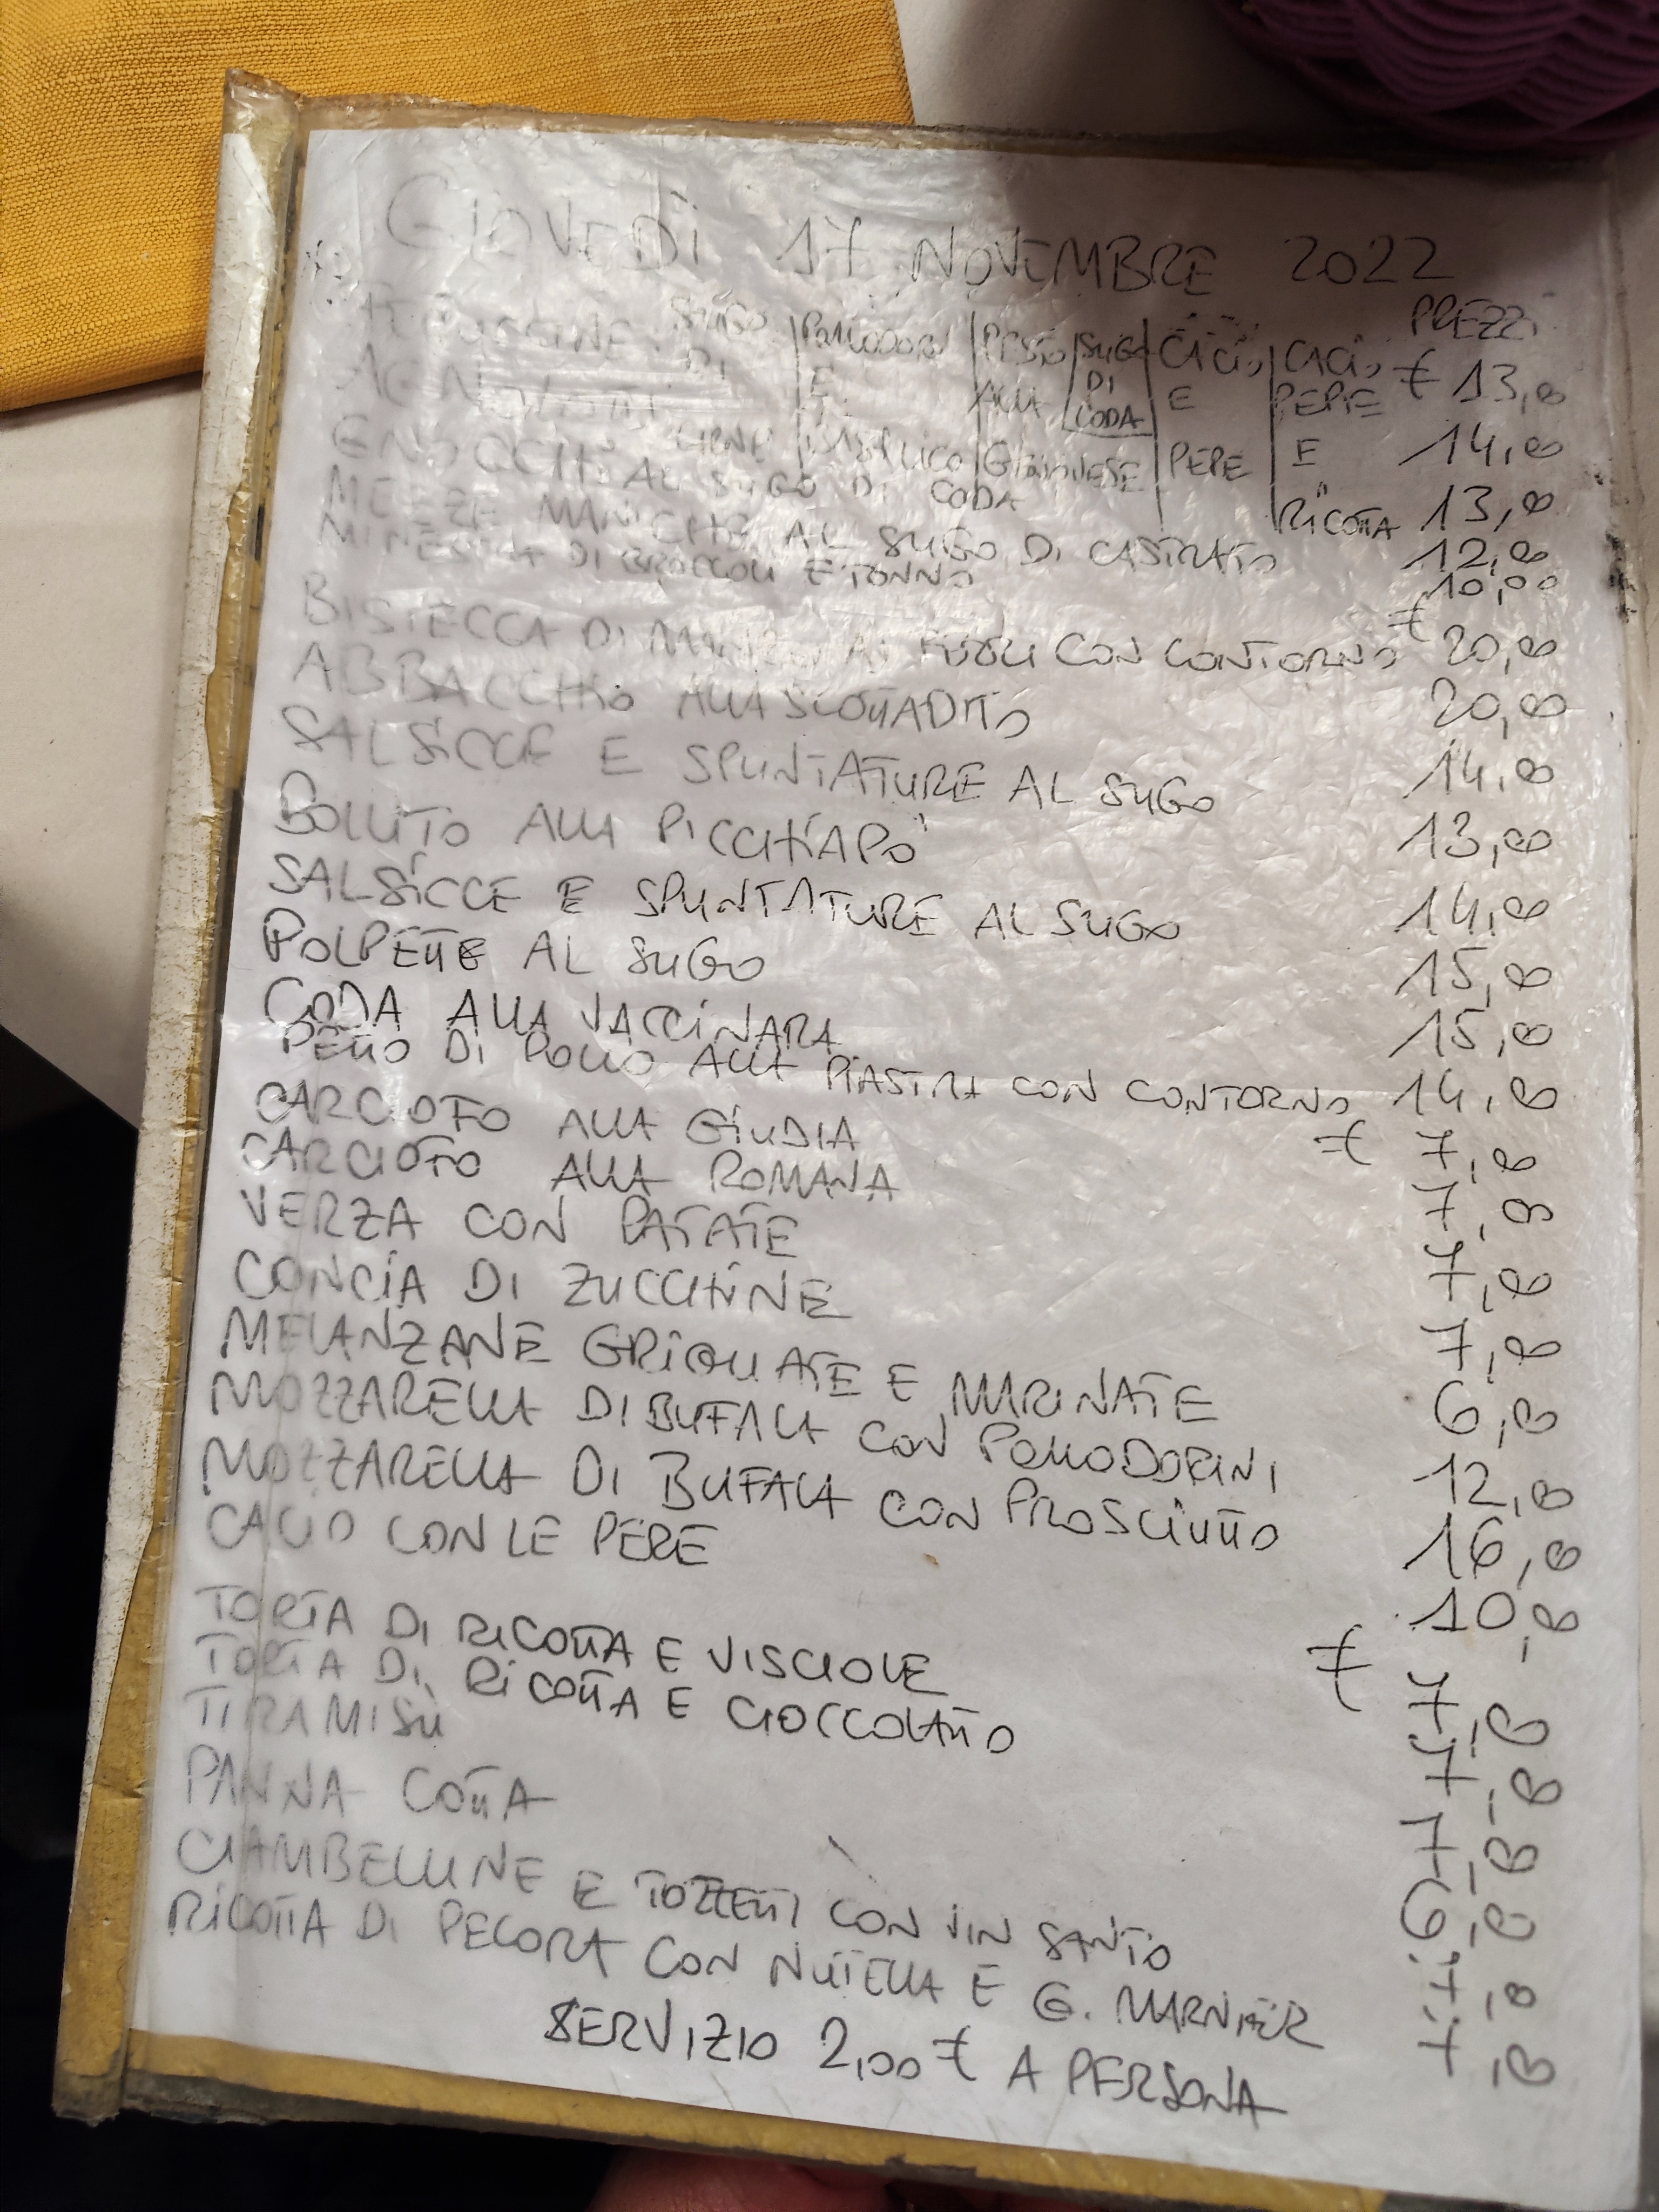 GIOVEDÌ 17 NOVEMBRE 2022
PREZZI
FETTUCCINE SUGO DI CARNE | POMODORO E BASILICO | PESTO ALLA GENOVESE | SUGO DI CODA | CACIO E PEPE | CACIO PEPE E RICOTTA € 13,00
14,00
GNOCCHI AL SUGO DI CODA 13,00
MEZZE MANICHE AL SUGO DI CASTRATO 12,00
MINESTRA DI BROCCOLI E TONNO 10,00
BISTECCA DI MANZO AI FERRI CON CONTORNO € 20,00
ABBACCHIO ALLA SCOTTADITO 20,00
SALSICCE E SPUNTATURE AL SUGO 14,00
BOLLITO ALLA PICCHIAPÒ 13,00
SALSICCE E SPUNTATURE AL SUGO 14,00
POLPETTE AL SUGO 15,00
CODA ALLA VACCINARA 15,00
PETTO DI POLLO ALLA PIASTRA CON CONTORNO 14,00
CARCIOFO ALLA GIUDIA € 7,00
CARCIOFO ALLA ROMANA 7,00
VERZA CON PATATE 7,00
CONCIA DI ZUCCHINE 7,00
MELANZANE GRIGLIATE E MARINATE 6,00
MOZZARELLA DI BUFALA CON POMODORINI 12,00
MOZZARELLA DI BUFALA CON PROSCIUTTO 16,00
CACIO CON LE PERE 10,00
TORTA DI RICOTTA E VISCIOLE € 7,00
TORTA DI RICOTTA E CIOCCOLATO 7,00
TIRAMISÙ 7,00
PANNA COTTA 6,00
CIAMBELLINE E TOZZETTI CON VIN SANTO 7,00
RICOTTA DI PECORA CON NUTELLA E G. MARNIER 7,00
SERVIZIO 2,00 € A PERSONA